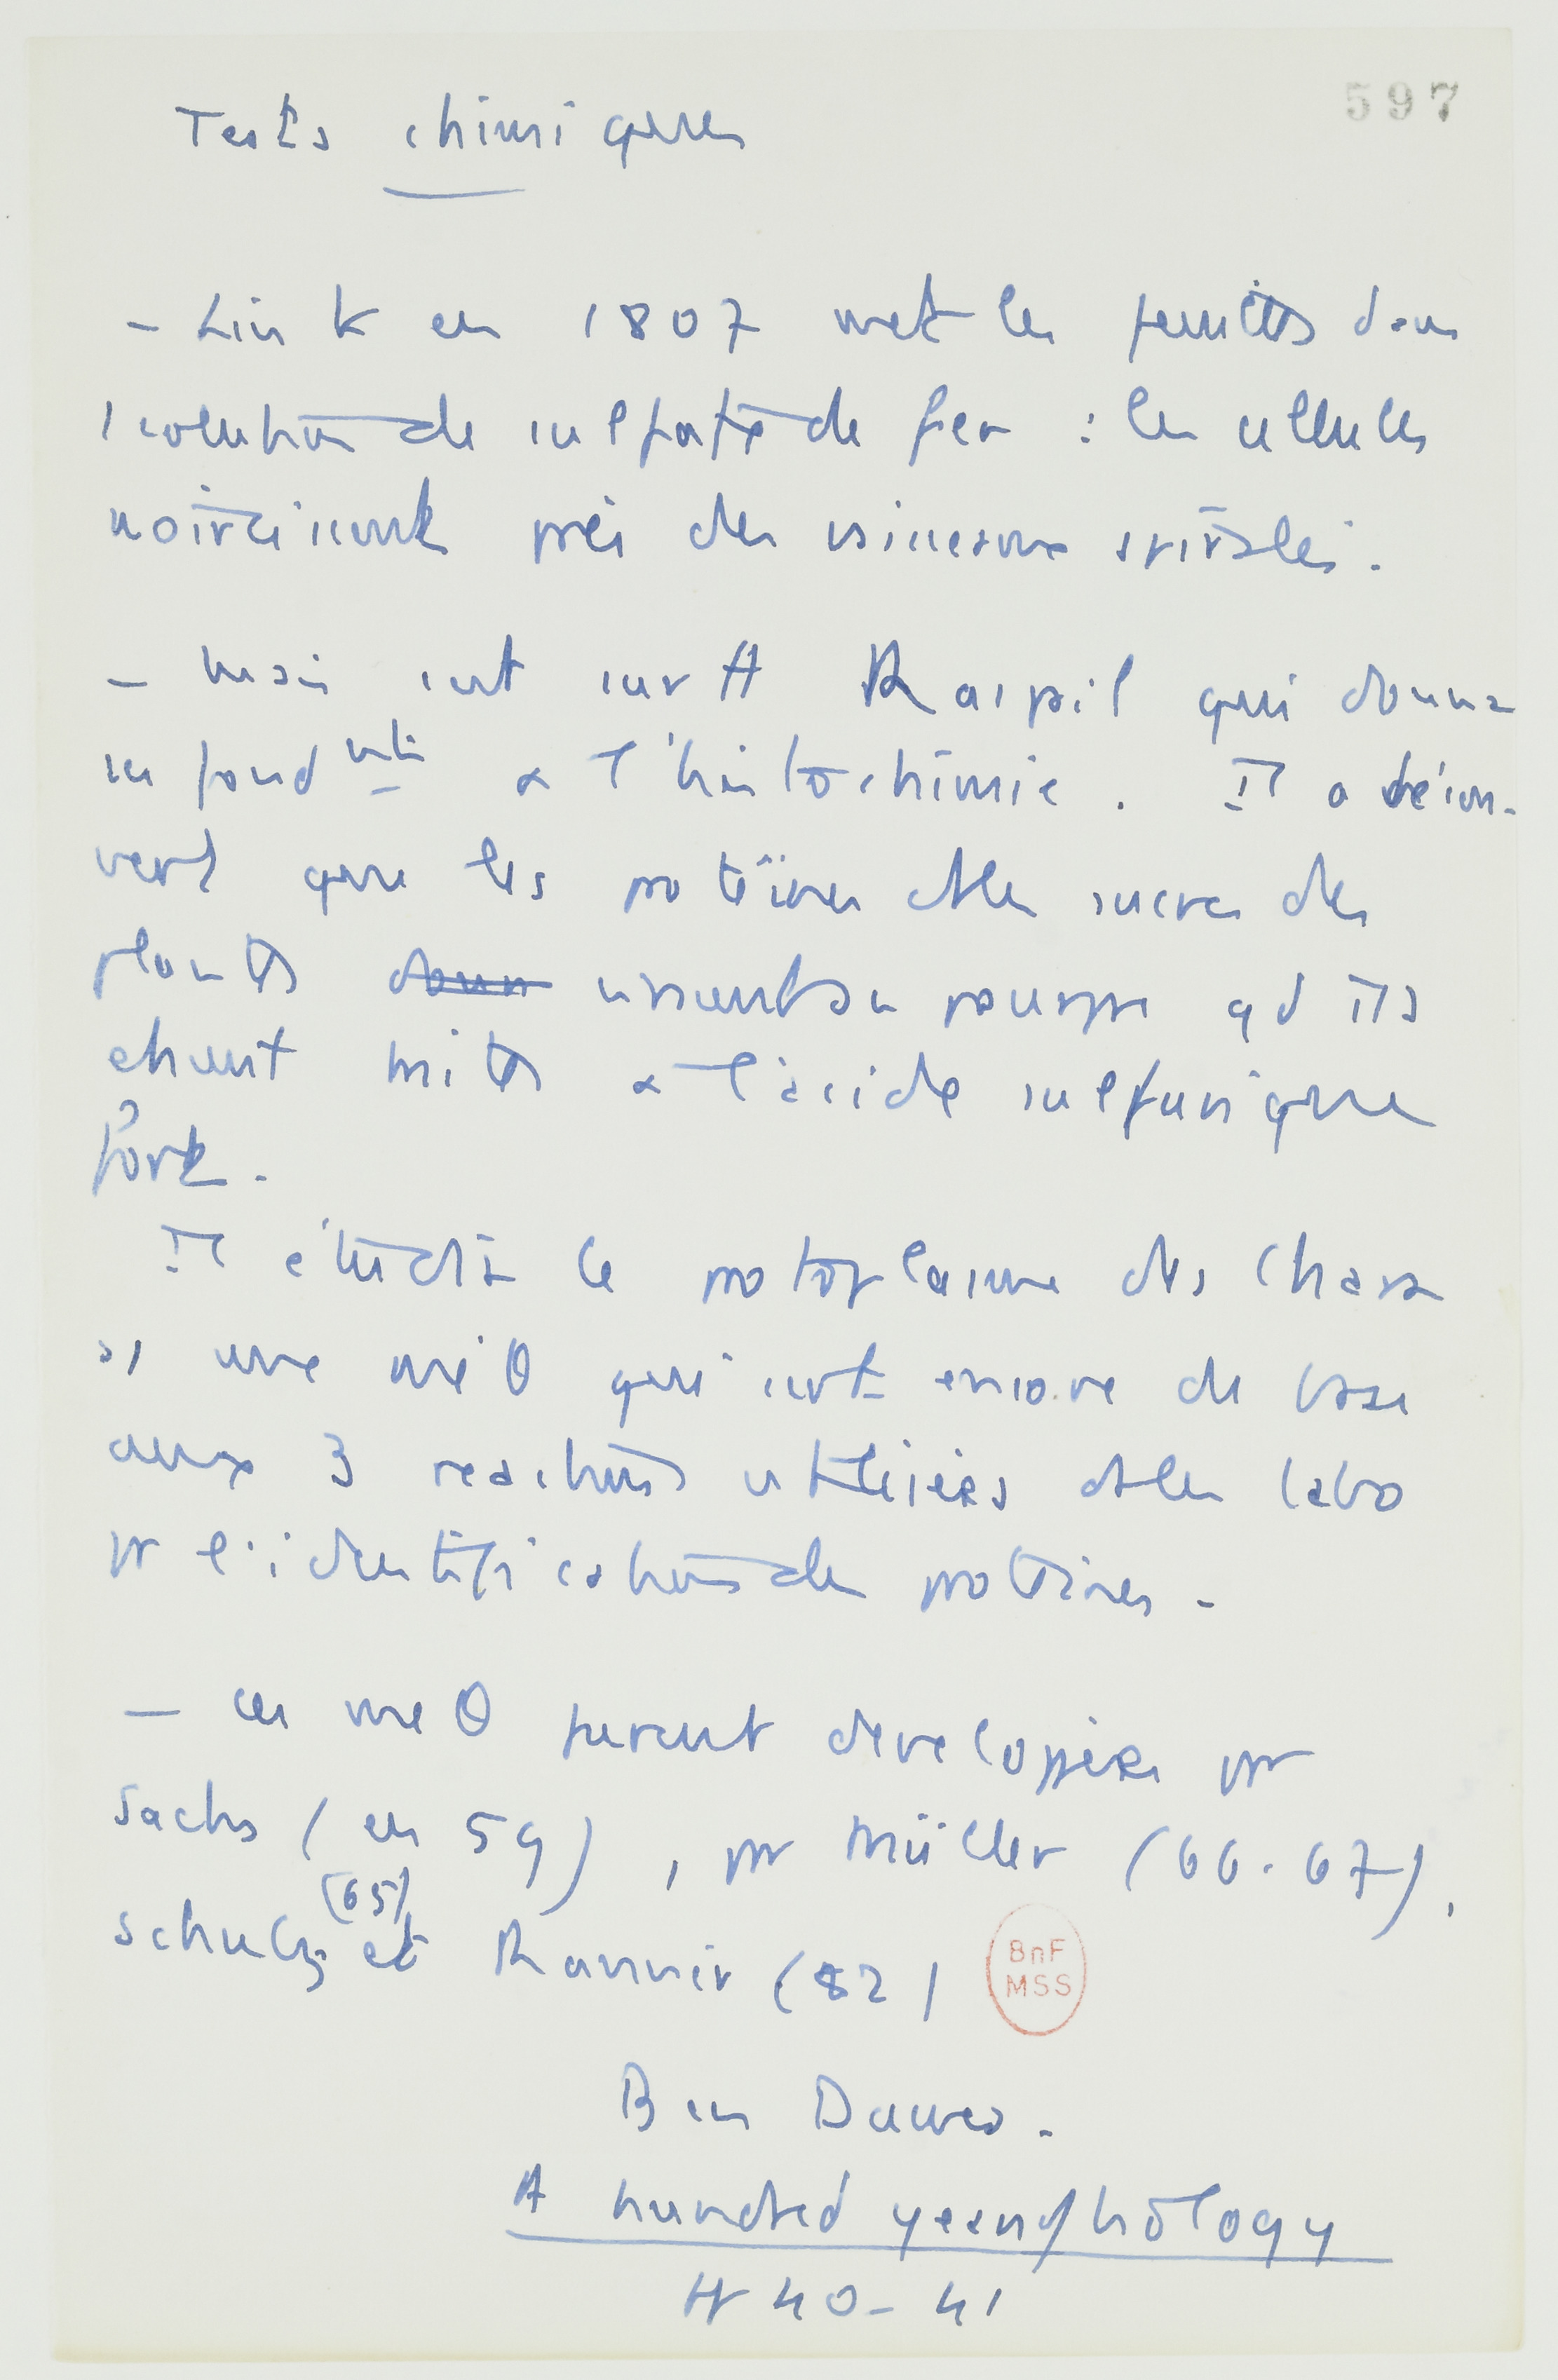 597
Tests chimiques
- Link en 1807 met les feuilles dans
1 solution de sulfate de fer : les cellules
noircissent près des vaisseaux spiralés.
- Mais c'est surtt Raspail qui donna
ses fondmts à l'histochimie. Il a décou-
vert que les protéines et les sucres des
plantes donn virent au pourpre qd ils
étaient mis à l'acide sulfurique
fort.
Il étudia le protoplasme des Chara
s/ une méθ qui sert encore de base
aux 3 réactions utilisées ds les labo
pr l'identification des protéines.
- Ces méθ furent développées par
Sachs (en 59), par Müller (66-67),
(65)
Schulz et Rannvir (82)
BnF
MSS
Ben Dawes.
A hundred years of biology
pp 40-41